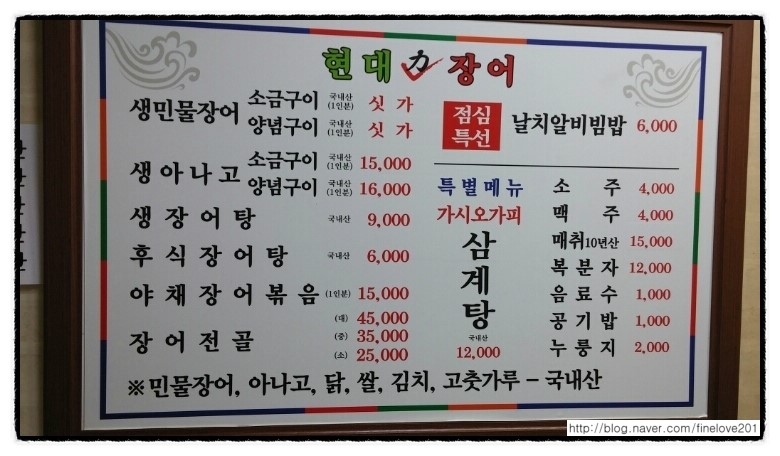 현대 カ 장어
생민물장어 소금구이 국내산 (1인분) 싯가
양념구이 국내산 (1인분) 싯가
생아나고 소금구이 국내산 (1인분) 15,000
양념구이 국내산 (1인분) 16,000
생장어탕 국내산 9,000
후식장어탕 국내산 6,000
야채장어볶음 (1인분) 15,000
장어전골 (대) 45,000
(중) 35,000
(소) 25,000
점심특선 날치알비빔밥 6,000
특별메뉴
가시오가피
삼계탕
국내산
12,000
소주 4,000
맥주 4,000
매취10년산 15,000
복분자 12,000
음료수 1,000
공기밥 1,000
누룽지 2,000
※민물장어, 아나고, 닭, 쌀, 김치, 고춧가루 – 국내산
http://blog.naver.com/finelove201